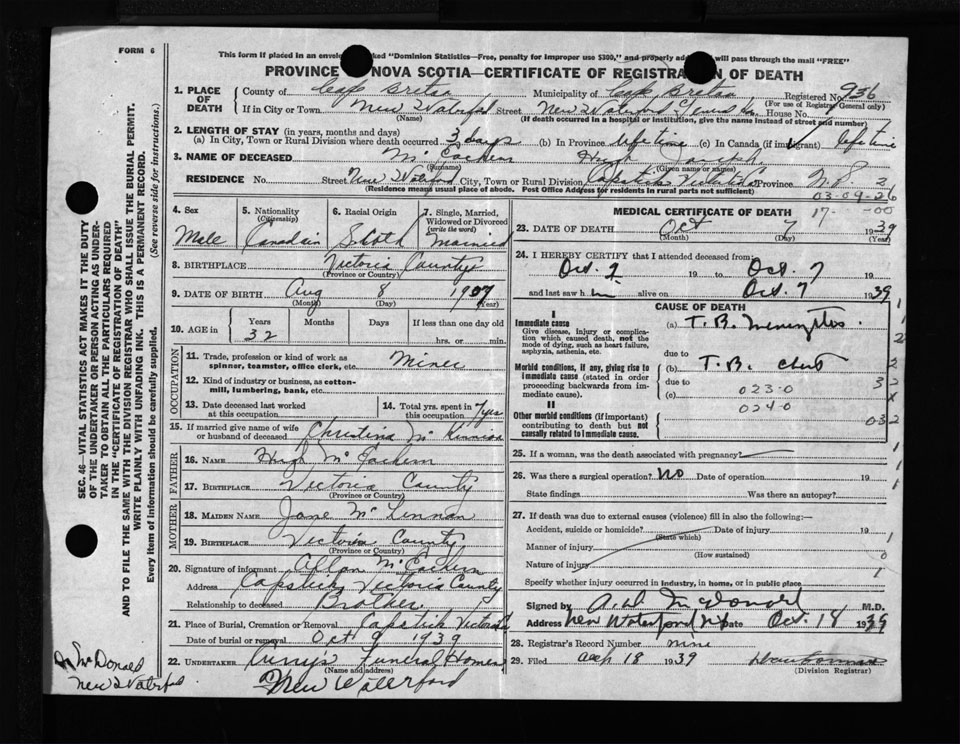 FORM 6
This form if placed in an envelope marked "Dominion Statistics—Free, penalty for improper use $300," and properly addressed will pass through the mail "FREE"
PROVINCE NOVA SCOTIA—CERTIFICATE OF REGISTRATION OF DEATH
1. PLACE OF DEATH County of Cape Breton Municipality of Cape Breton Registered No. 936
(For use of Registrar General only)
If in City or Town New Waterford Street New Waterford General House No.
(Name) (If death occurred in a hospital or institution, give the name instead of street and number)
2. LENGTH OF STAY (in years, months and days)
(a) In City, Town or Rural Division where death occurred 3 days (b) In Province lifetime (c) In Canada (if immigrant) lifetime
3. NAME OF DECEASED McEachern Hugh Joseph
(Surname) (Given name or names)
RESIDENCE No. Street New Waterford City, Town or Rural Division Capstick Victoria Co Province N.S
(Residence means usual place of abode. Post Office Address for residents in rural parts not sufficient)
03-09-26
17-00
2
4. Sex Male
5. Nationality (Citizenship) Canadain
6. Racial Origin Scoth
7. Single, Married, Widowed or Divorced (write the word) Married
8. BIRTHPLACE Victoria County
(Province or Country)
9. DATE OF BIRTH Aug 8 1907
(Month) (Day) (Year)
10. AGE in Years 32 Months Days If less than one day old
hrs. or min.
OCCUPATION
11. Trade, profession or kind of work as spinner, teamster, office clerk, etc. Miner
12. Kind of industry or business, as cotton-mill, lumbering, bank, etc.
13. Date deceased last worked at this occupation
14. Total yrs. spent in this occupation 7yrs
15. If married give name of wife or husband of deceased Christina McKinnon
FATHER
16. NAME Hugh McEachern
17. BIRTHPLACE Victoria County
(Province or Country)
MOTHER
18. MAIDEN NAME Jane McLennan
19. BIRTHPLACE Victoria County
(Province or Country)
20. Signature of informant Allan McEachern
Address Capstick Victoria County
Relationship to deceased Brother
21. Place of Burial, Cremation or Removal Capstick Victoria
Date of burial or removal Oct 9 1939
22. UNDERTAKER Curry's Funeral Home
(Name and address)
New Waterford
MEDICAL CERTIFICATE OF DEATH
23. DATE OF DEATH Oct 7 1939
(Month) (Day) (Year)
24. I HEREBY CERTIFY that I attended deceased from:
Oct. 2 19 to Oct. 7 19
and last saw him alive on Oct. 7 1939
CAUSE OF DEATH
I
Immediate cause
Give disease, injury or complication which caused death, not the mode of dying, such as heart failure, asphyxia, asthenia, etc.
(a) T.B. Meningitis.
due to
Morbid conditions, if any, giving rise to immediate cause (stated in order proceeding backwards from immediate cause).
(b) T.B. chest
due to
(c) 023-0
024-0
II
Other morbid conditions (important) contributing to death but not causally related to immediate cause.
1
2
2
32
X
032
1
1
1
1
0
1
25. If a woman, was the death associated with pregnancy?
26. Was there a surgical operation? No Date of operation 19
State findings Was there an autopsy?
27. If death was due to external causes (violence) fill in also the following:—
Accident, suicide or homicide? Date of injury 19
(State which)
Manner of injury
(How sustained)
Nature of injury
Specify whether injury occurred in industry, in home, or in public place
Signed by A.D. McDonald M.D.
Address New Waterford NS Date Oct. 18 1939
28. Registrar's Record Number nine
29. Filed 18 1939
(Division Registrar)
SEC. 46—VITAL STATISTICS ACT MAKES IT THE DUTY
OF THE UNDERTAKER OR PERSON ACTING AS UNDER-
TAKER TO OBTAIN ALL THE PARTICULARS REQUIRED
IN THE "CERTIFICATE OF REGISTRATION OF DEATH"
AND TO FILE THE SAME WITH THE DIVISION REGISTRAR WHO SHALL ISSUE THE BURIAL PERMIT.
WRITE PLAINLY WITH UNFADING INK. THIS IS A PERMANENT RECORD.
Every item of information should be carefully supplied. (See reverse side for instructions.)
McDonald
New Waterford